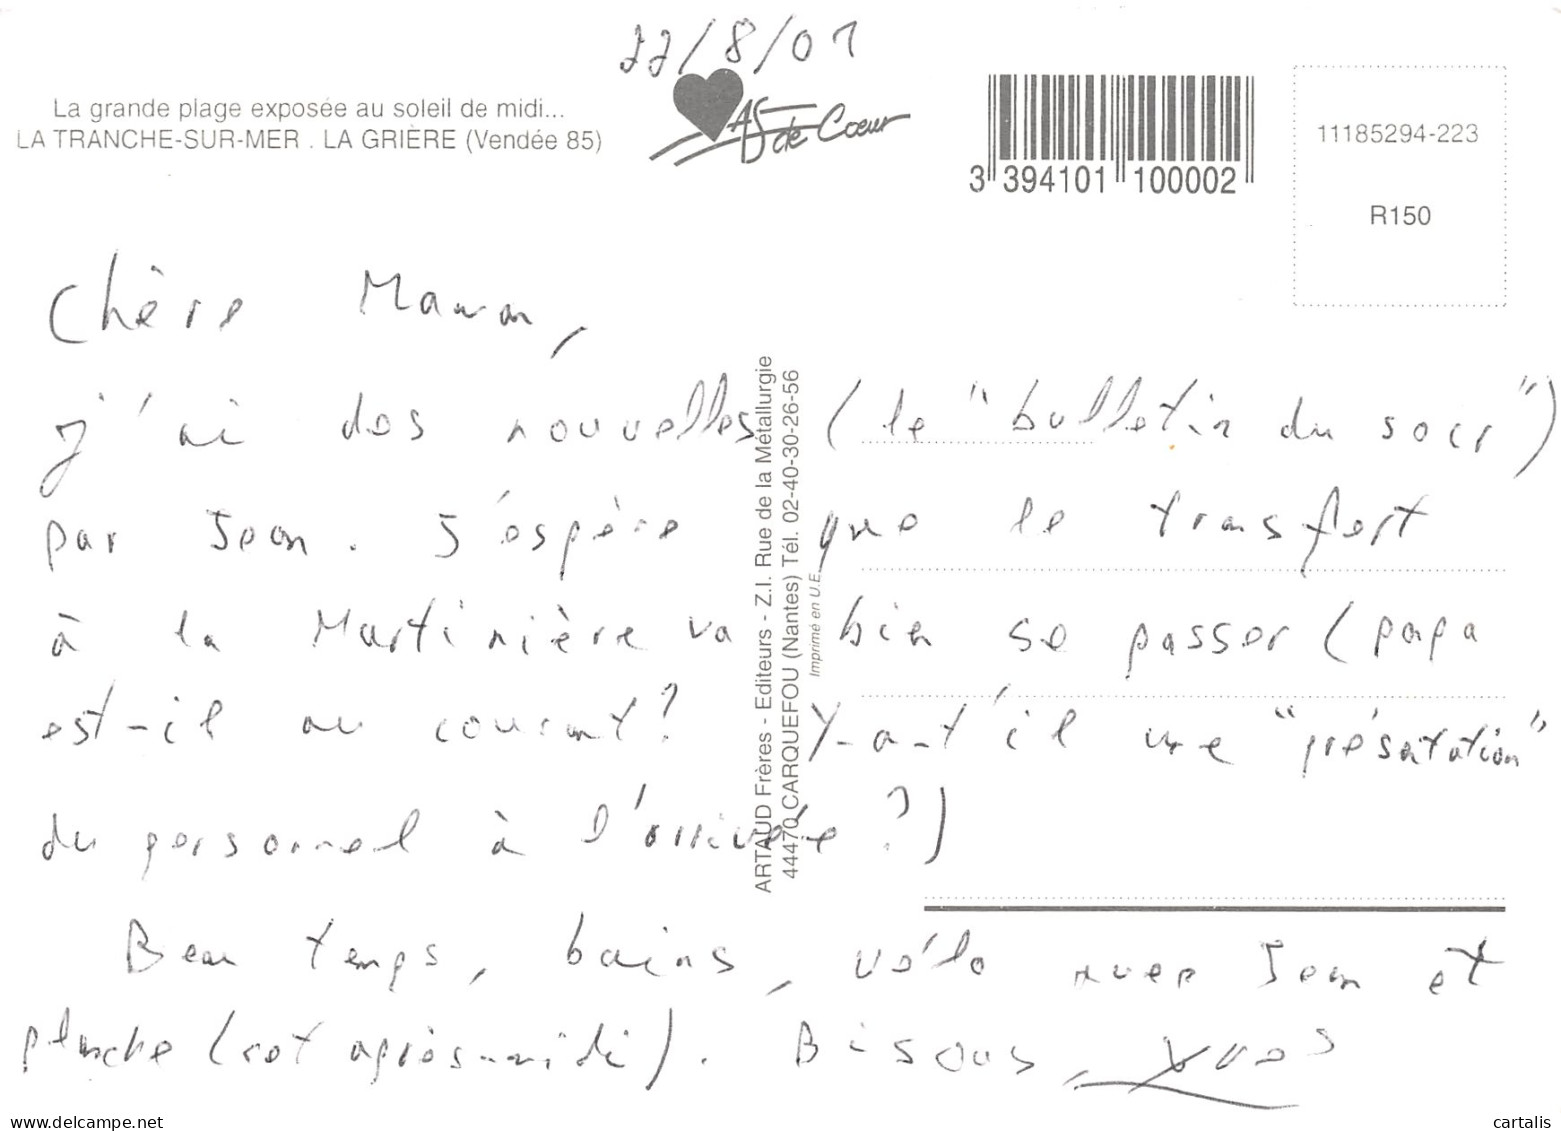 22/8/01
La grande plage exposée au soleil de midi...
LA TRANCHE-SUR-MER . LA GRIÈRE (Vendée 85)
AS de Coeur
3 394101 100002
11185294-223
R150
Chère Maman,
j'ai des nouvelles (le "bulletin du soir")
par Jean. J'espère que le transfert
à la Martinière va bien se passer (papa
est-il au courant? Y-a-t'il une "présentation"
du personnel à l'arrivée?)
Beau temps, bains, vélo avec Jean et
planche (cet après-midi). Bisous, Yves
ARTAUD Frères - Editeurs - Z.I. Rue de la Métallurgie
44470 CARQUEFOU (Nantes) Tél. 02-40-30-26-56
Imprimé en U.E.
www.delcampe.net
cartalis